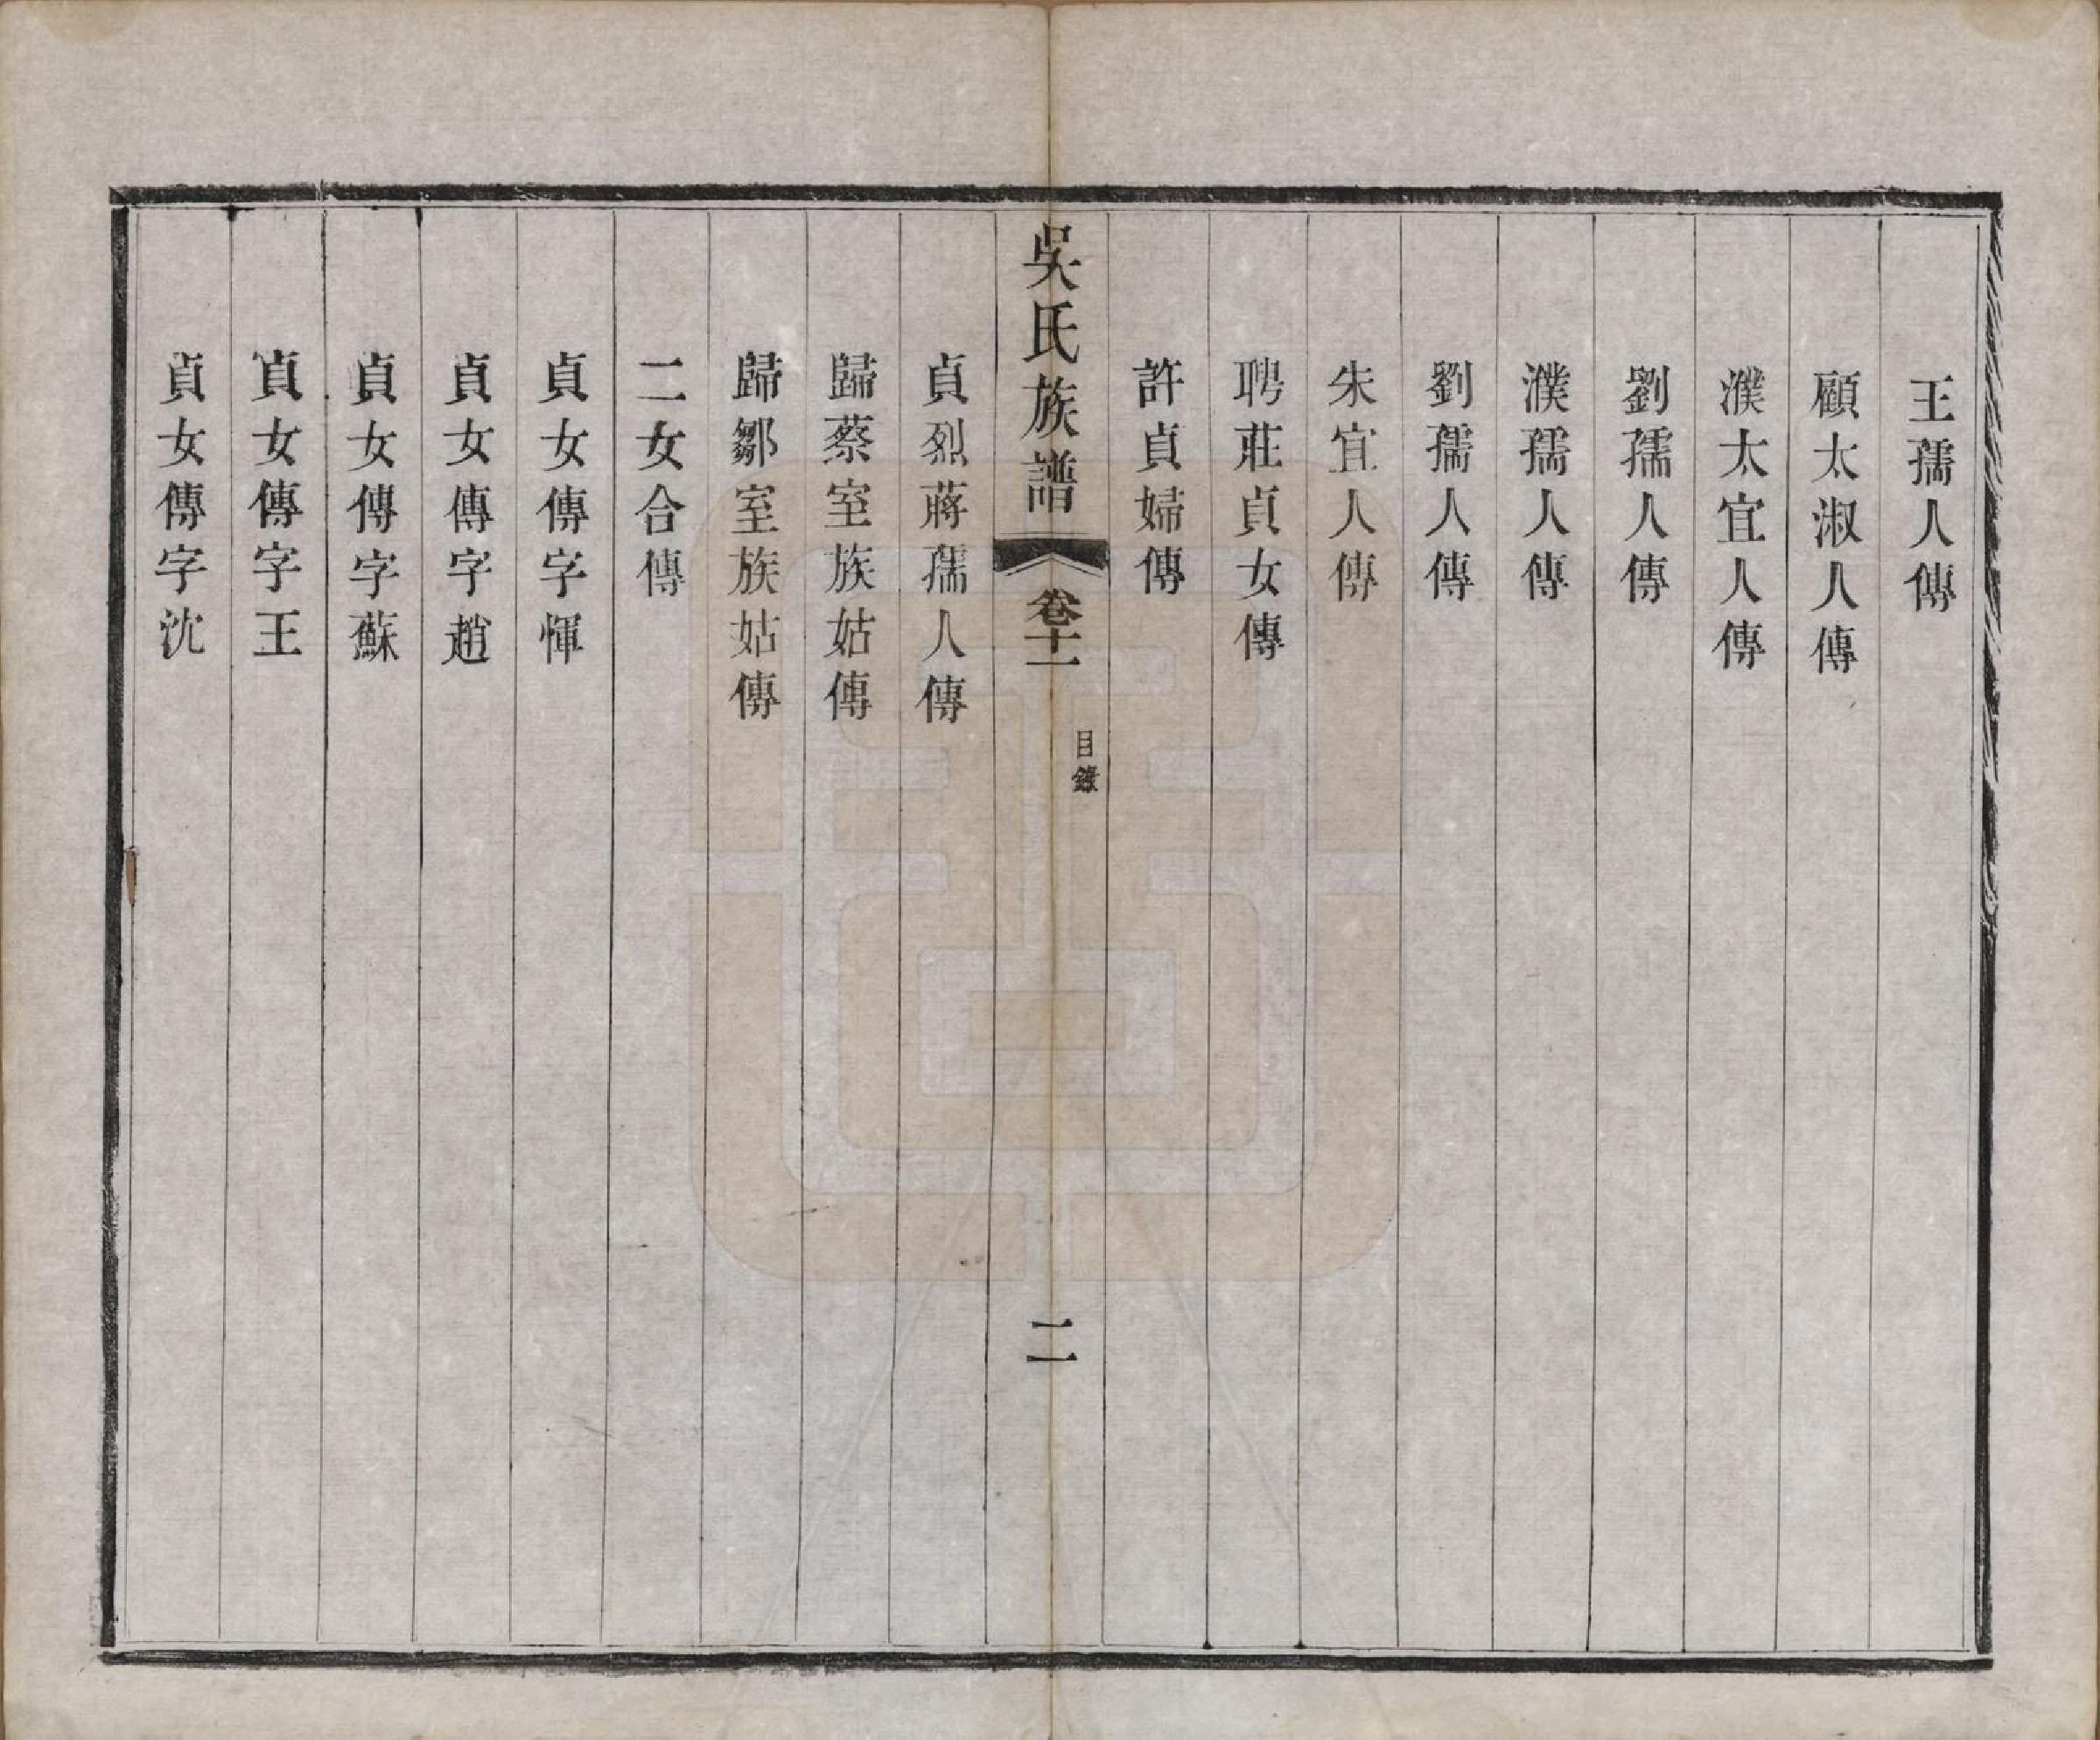 王孺人傳
顧太淑人傳
濮太宜人傳
劉孺人傳
濮孺人傳
劉孺人傳
朱宜人傳
聘莊貞女傳
許貞婦傳
吳氏族譜
卷十一
目錄
二
貞烈蔣孺人傳
歸蔡室族姑傳
歸鄒室族姑傳
二女合傳
貞女傳字惲
貞女傳字趙
貞女傳字蘇
貞女傳字王
貞女傳字沈